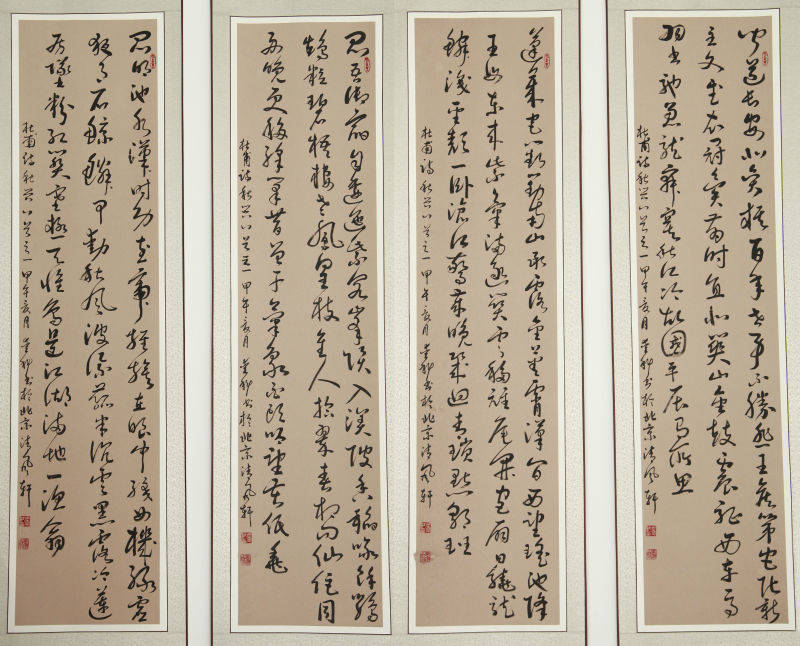 聞道長安似弈棋百年世事不勝悲王侯第宅皆新
主文武衣冠異昔時直北關山金鼓震征西車馬
羽書馳魚龍寂寞秋江冷故國平居有所思
杜甫詩秋興八首之一甲午亥月書於北京清風軒
蓬萊宮闕對南山承露金莖霄漢間西望瑤池降
王母東來紫氣滿函關雲移雉尾開宮扇日繞龍
鱗識聖顏一臥滄江驚歲晚幾迴青瑣點朝班
杜甫詩秋興八首之一甲午亥月書於北京清風軒
昆吾御宿自逶迤紫閣峰陰入渼陂香稻啄餘鸚
鵡粒碧梧棲老鳳凰枝佳人拾翠春相問仙侶同
舟晚更移綵筆昔曾干氣象白頭吟望苦低垂
杜甫詩秋興八首之一甲午亥月書於北京清風軒
昆明池水漢時功武帝旌旗在眼中織女機絲虛
夜月石鯨鱗甲動秋風波漂菰米沉雲黑露冷蓮
房墜粉紅關塞極天惟鳥道江湖滿地一漁翁
杜甫詩秋興八首之一甲午亥月書於北京清風軒